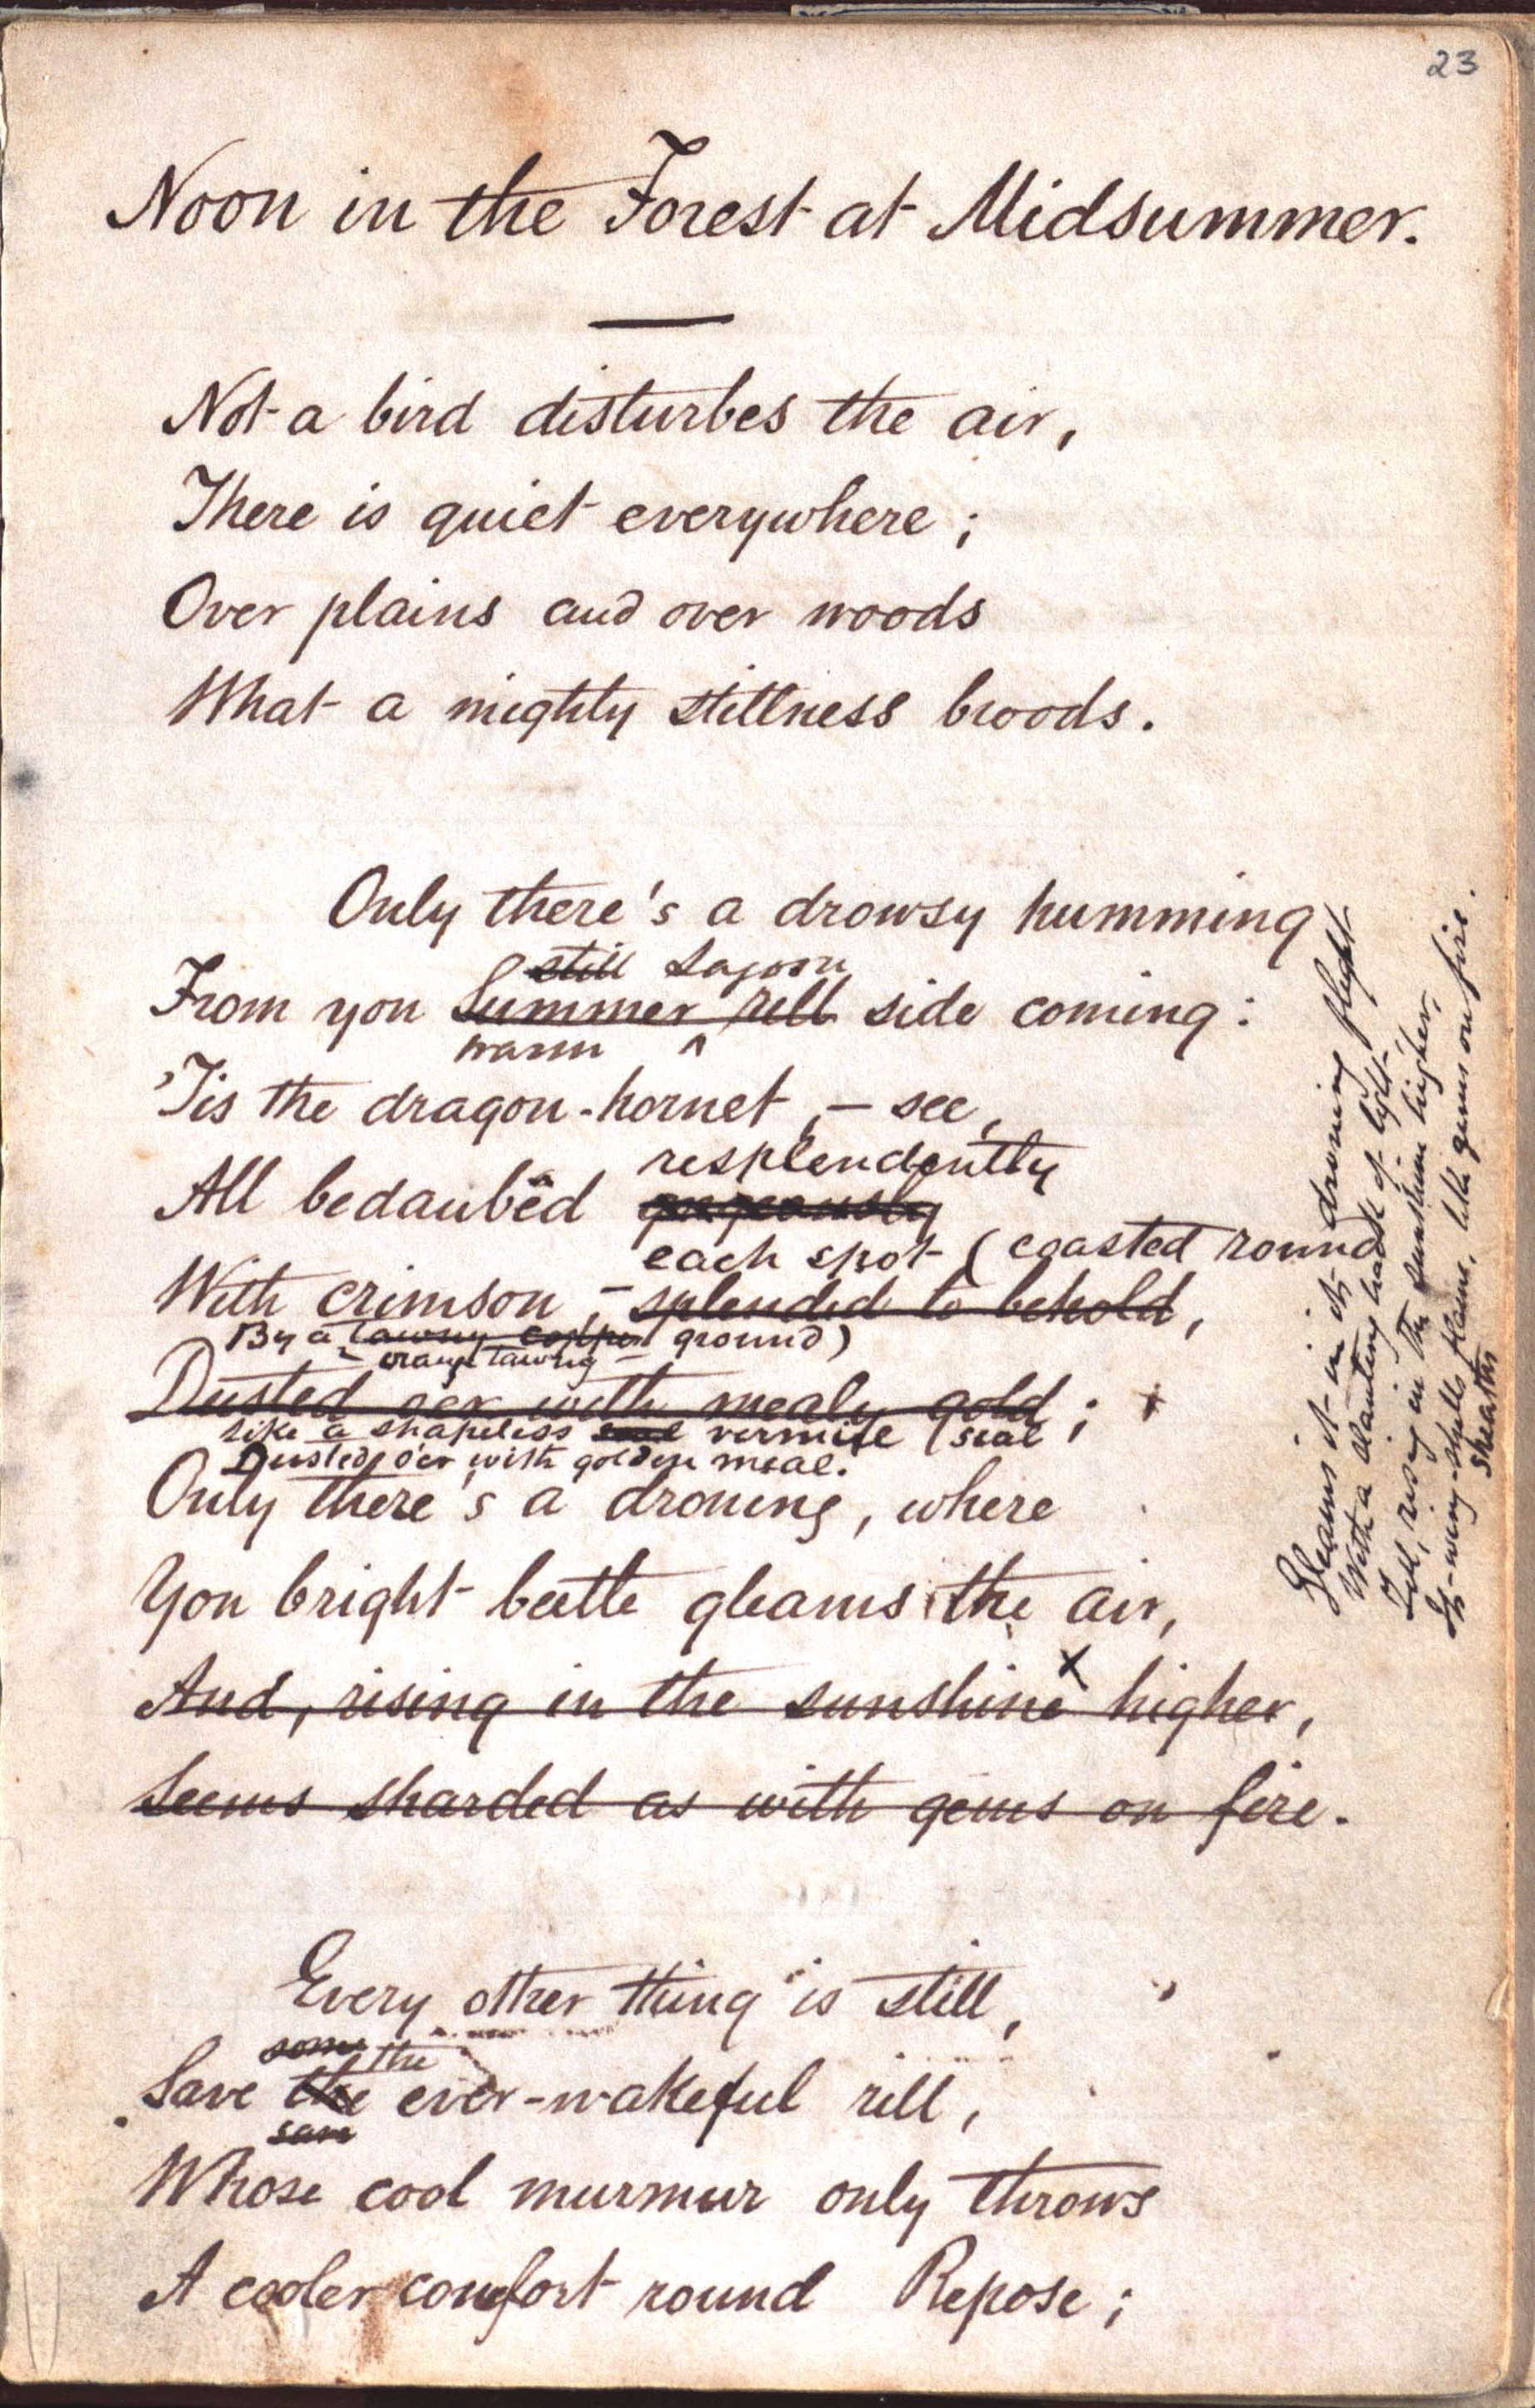 23
Noon in the Forest at Midsummer.
Not a bird disturbes the air,
There is quiet everywhere;
Over plains and over woods
What a mighty stillness broods.
Only there's a drowsy humming
still Lagoon
From yon Summer rill side coming:
warm ^
'Tis the dragon-hornet, – see,
resplendently
All bedaubëd gorgeously
each spot (coasted round
With crimson, – splended to behold,
By a tawny copper ground)
orange tawny
Dusted oer with mealy gold; +
like a shapeless seal vermile seal,
Dusted o'er with golden meal.
Only there's a droning, where
Yon bright beetle gleams the air,
x
And, rising in the sunshine higher,
Seems sharded as with gems on fire.
Every other thing is still,
some the
Save the ever-wakeful rill,
save
Whose cool murmur only throws
A cooler comfort round Repose;
Gleams it in its droning flight
With a slanting track of light
Till, rising in the sunshine higher,
Its wing-shells flame, like gems on fire.
sheaths